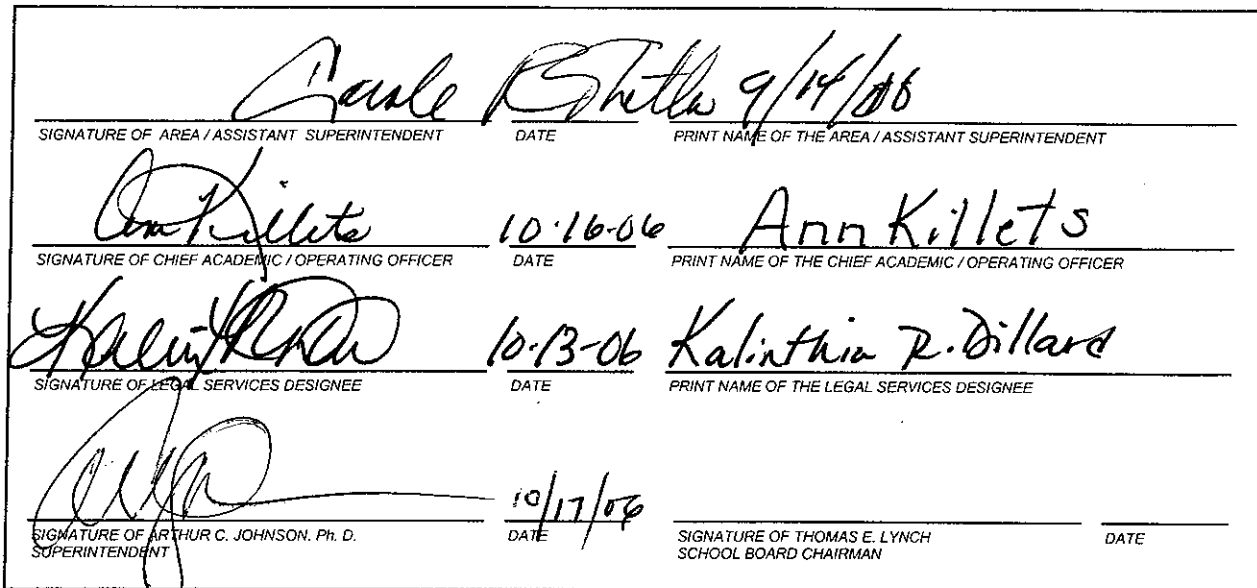 Carole 9/14/06
SIGNATURE OF AREA / ASSISTANT SUPERINTENDENT DATE PRINT NAME OF THE AREA / ASSISTANT SUPERINTENDENT
Ann Killets 10-16-06 Ann Killets
SIGNATURE OF CHIEF ACADEMIC / OPERATING OFFICER DATE PRINT NAME OF THE CHIEF ACADEMIC / OPERATING OFFICER
10-13-06 Kalinthia R. Dillard
SIGNATURE OF LEGAL SERVICES DESIGNEE DATE PRINT NAME OF THE LEGAL SERVICES DESIGNEE
10/17/06
SIGNATURE OF ARTHUR C. JOHNSON, Ph. D. DATE SIGNATURE OF THOMAS E. LYNCH DATE
SUPERINTENDENT SCHOOL BOARD CHAIRMAN